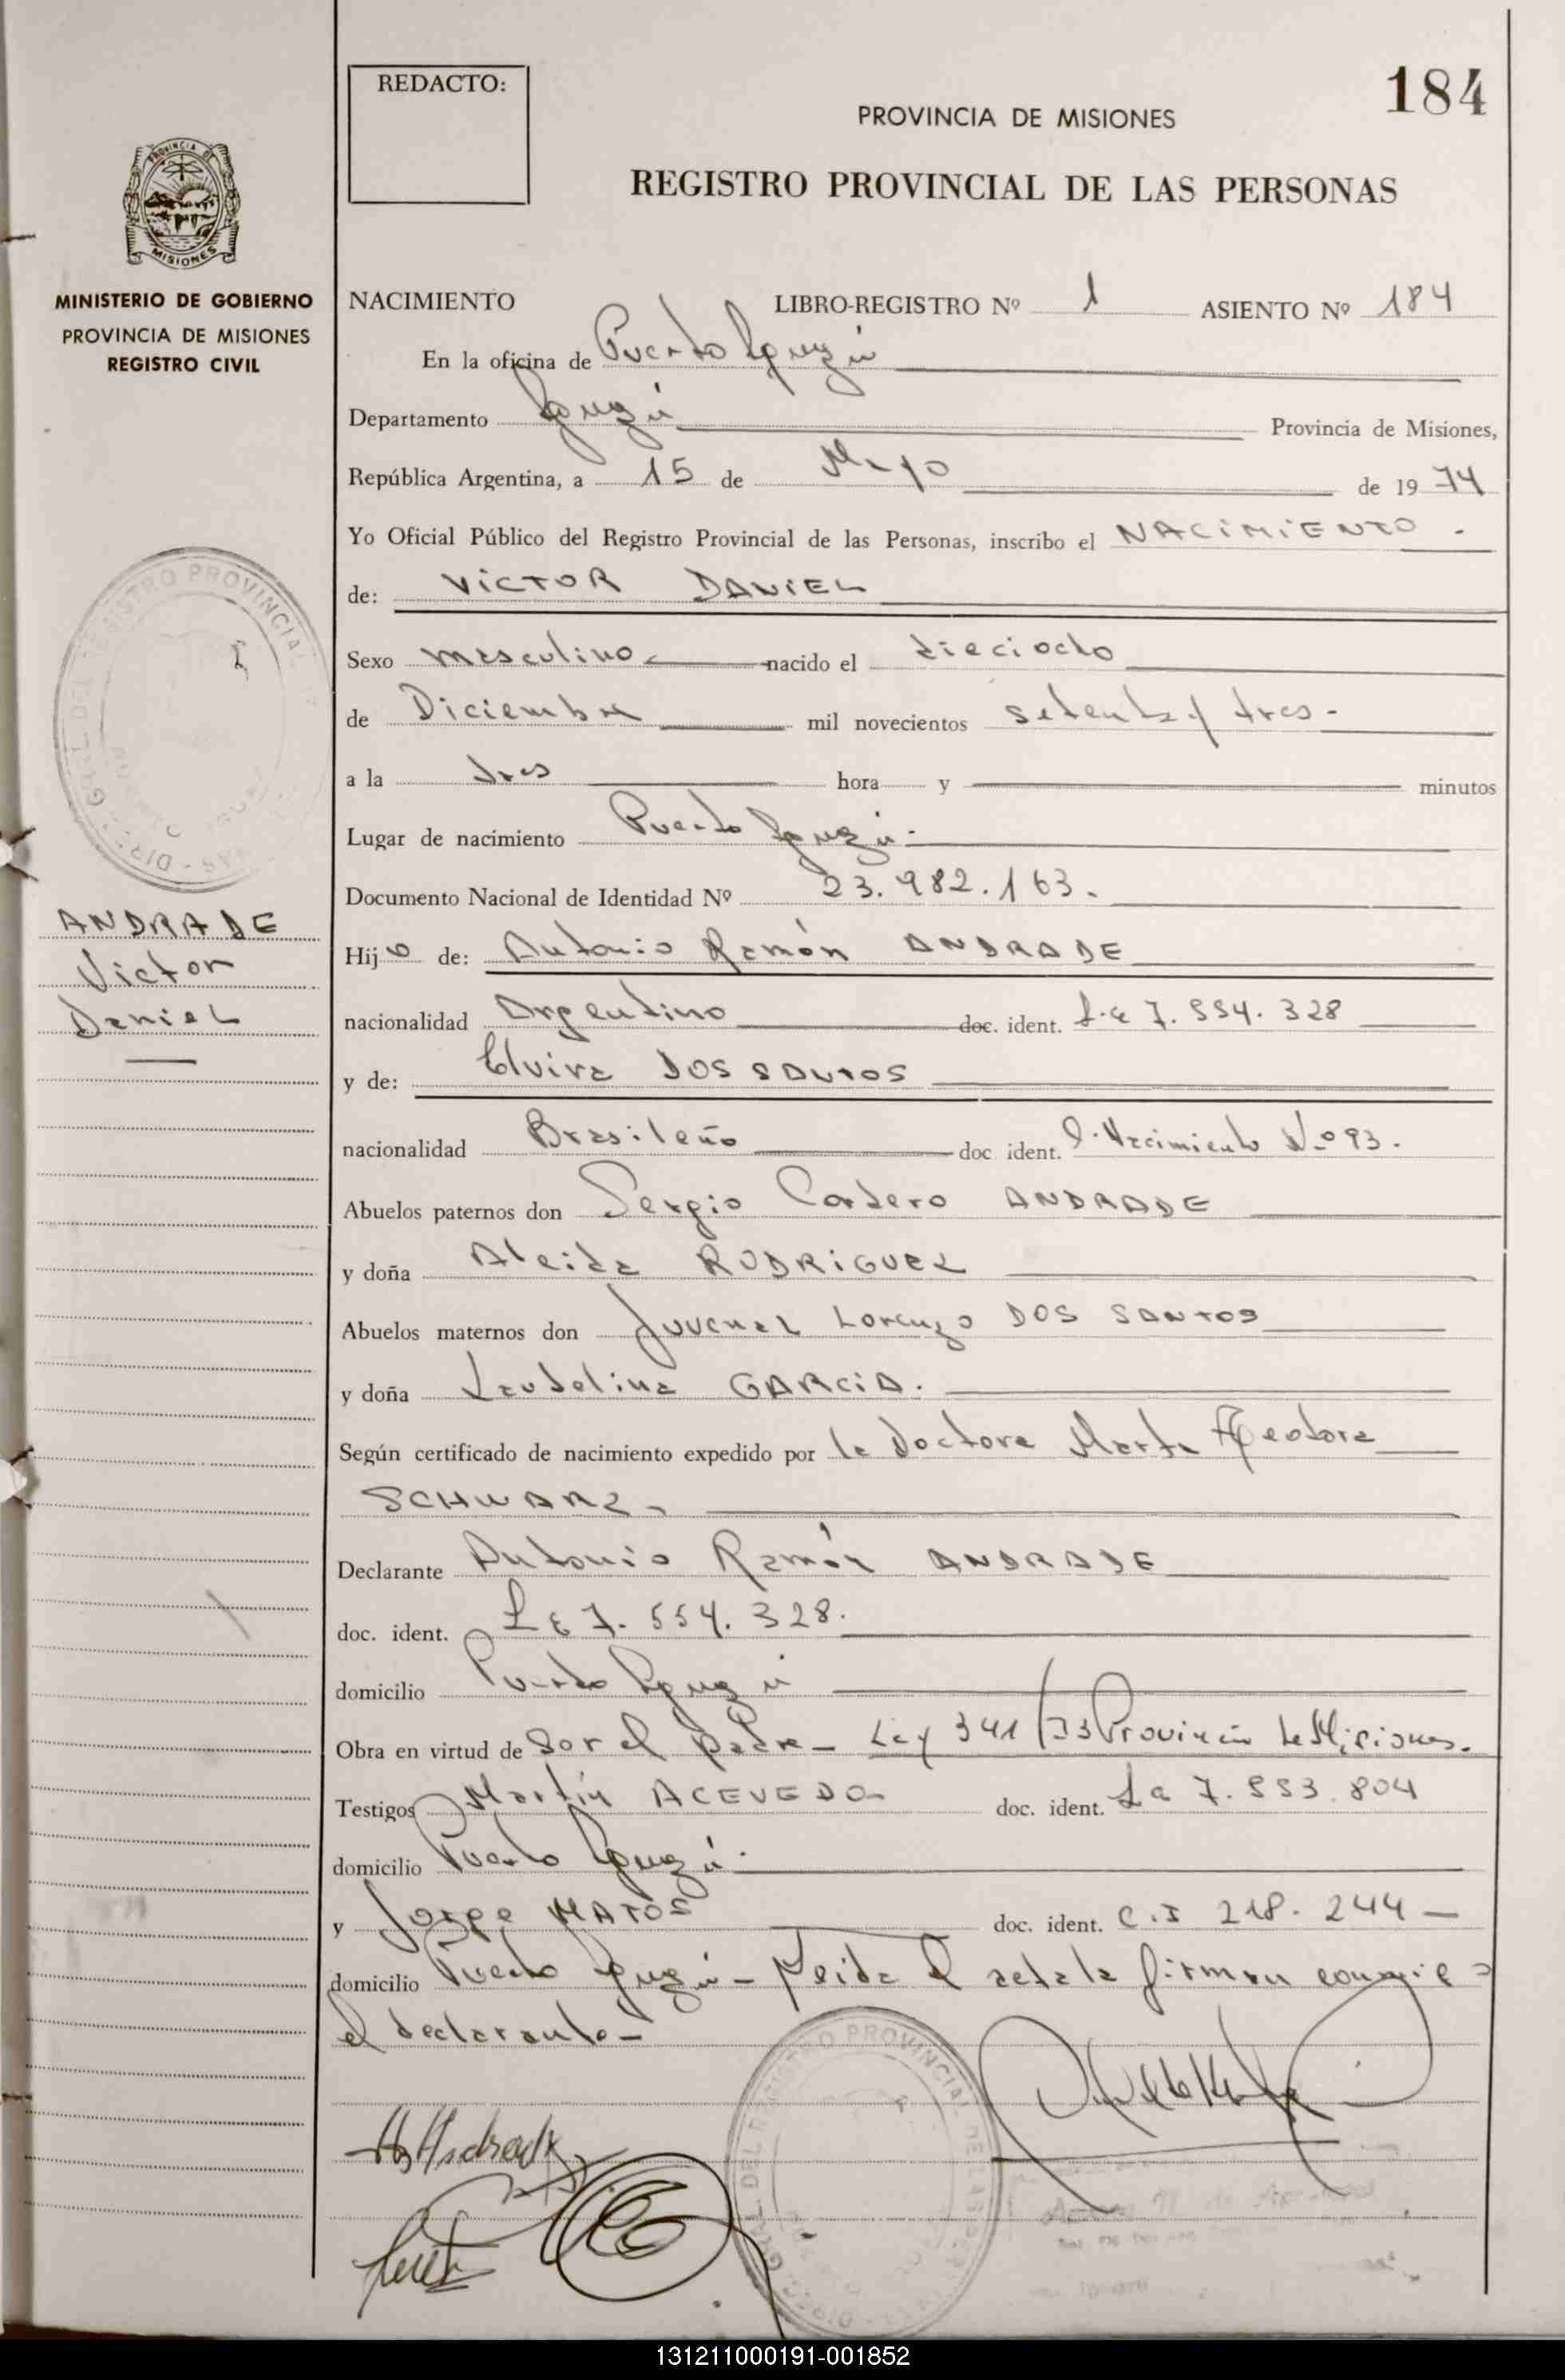 REDACTO:
184
PROVINCIA DE MISIONES
REGISTRO PROVINCIAL DE LAS PERSONAS
PROVINCIA DE
MISIONES
MINISTERIO DE GOBIERNO
PROVINCIA DE MISIONES
REGISTRO CIVIL
NACIMIENTO LIBRO-REGISTRO Nº 1 ASIENTO Nº 184
En la oficina de Puerto Iguazú
Departamento Iguazú Provincia de Misiones,
República Argentina, a 15 de Mayo de 1974
Yo Oficial Público del Registro Provincial de las Personas, inscribo el NACIMIENTO -
de: VICTOR DANIEL
Sexo masculino nacido el dieciocho
de Diciembre mil novecientos setenta y tres-
a la tres hora y minutos
Lugar de nacimiento Puerto Iguazú-
Documento Nacional de Identidad Nº 23.982.163.
ANDRADE
Victor
Daniel
Hijo de: Antonio Ramón ANDRADE
nacionalidad Argentino doc. ident. L.E 7.554.328
y de: Elvira DOS SANTOS
nacionalidad Brasileña doc ident. Nacimiento Nº 93.
Abuelos paternos don Sergio Cordero ANDRADE
y doña Aleida RODRIGUEZ
Abuelos maternos don Juvenal Lorenzo DOS SANTOS
y doña Laudelina GARCIA.
Según certificado de nacimiento expedido por la Doctora Marta Teodora
SCHWARZ-
Declarante Antonio Ramón ANDRADE
doc. ident. LE 7.554.328.
domicilio Puerto Iguazú
Obra en virtud de Ser el padre- Ley 341/73 Provincia de Misiones.
Testigos Martín ACEVEDO doc. ident. LE 7.553.804
domicilio Puerto Iguazú-
y Jorge MATOS doc. ident. C.I 218.244-
domicilio Puerto Iguazú- Leida el acta la firman conmigo
el declarante-
REGISTRO PROVINCIAL
131211000191-001852